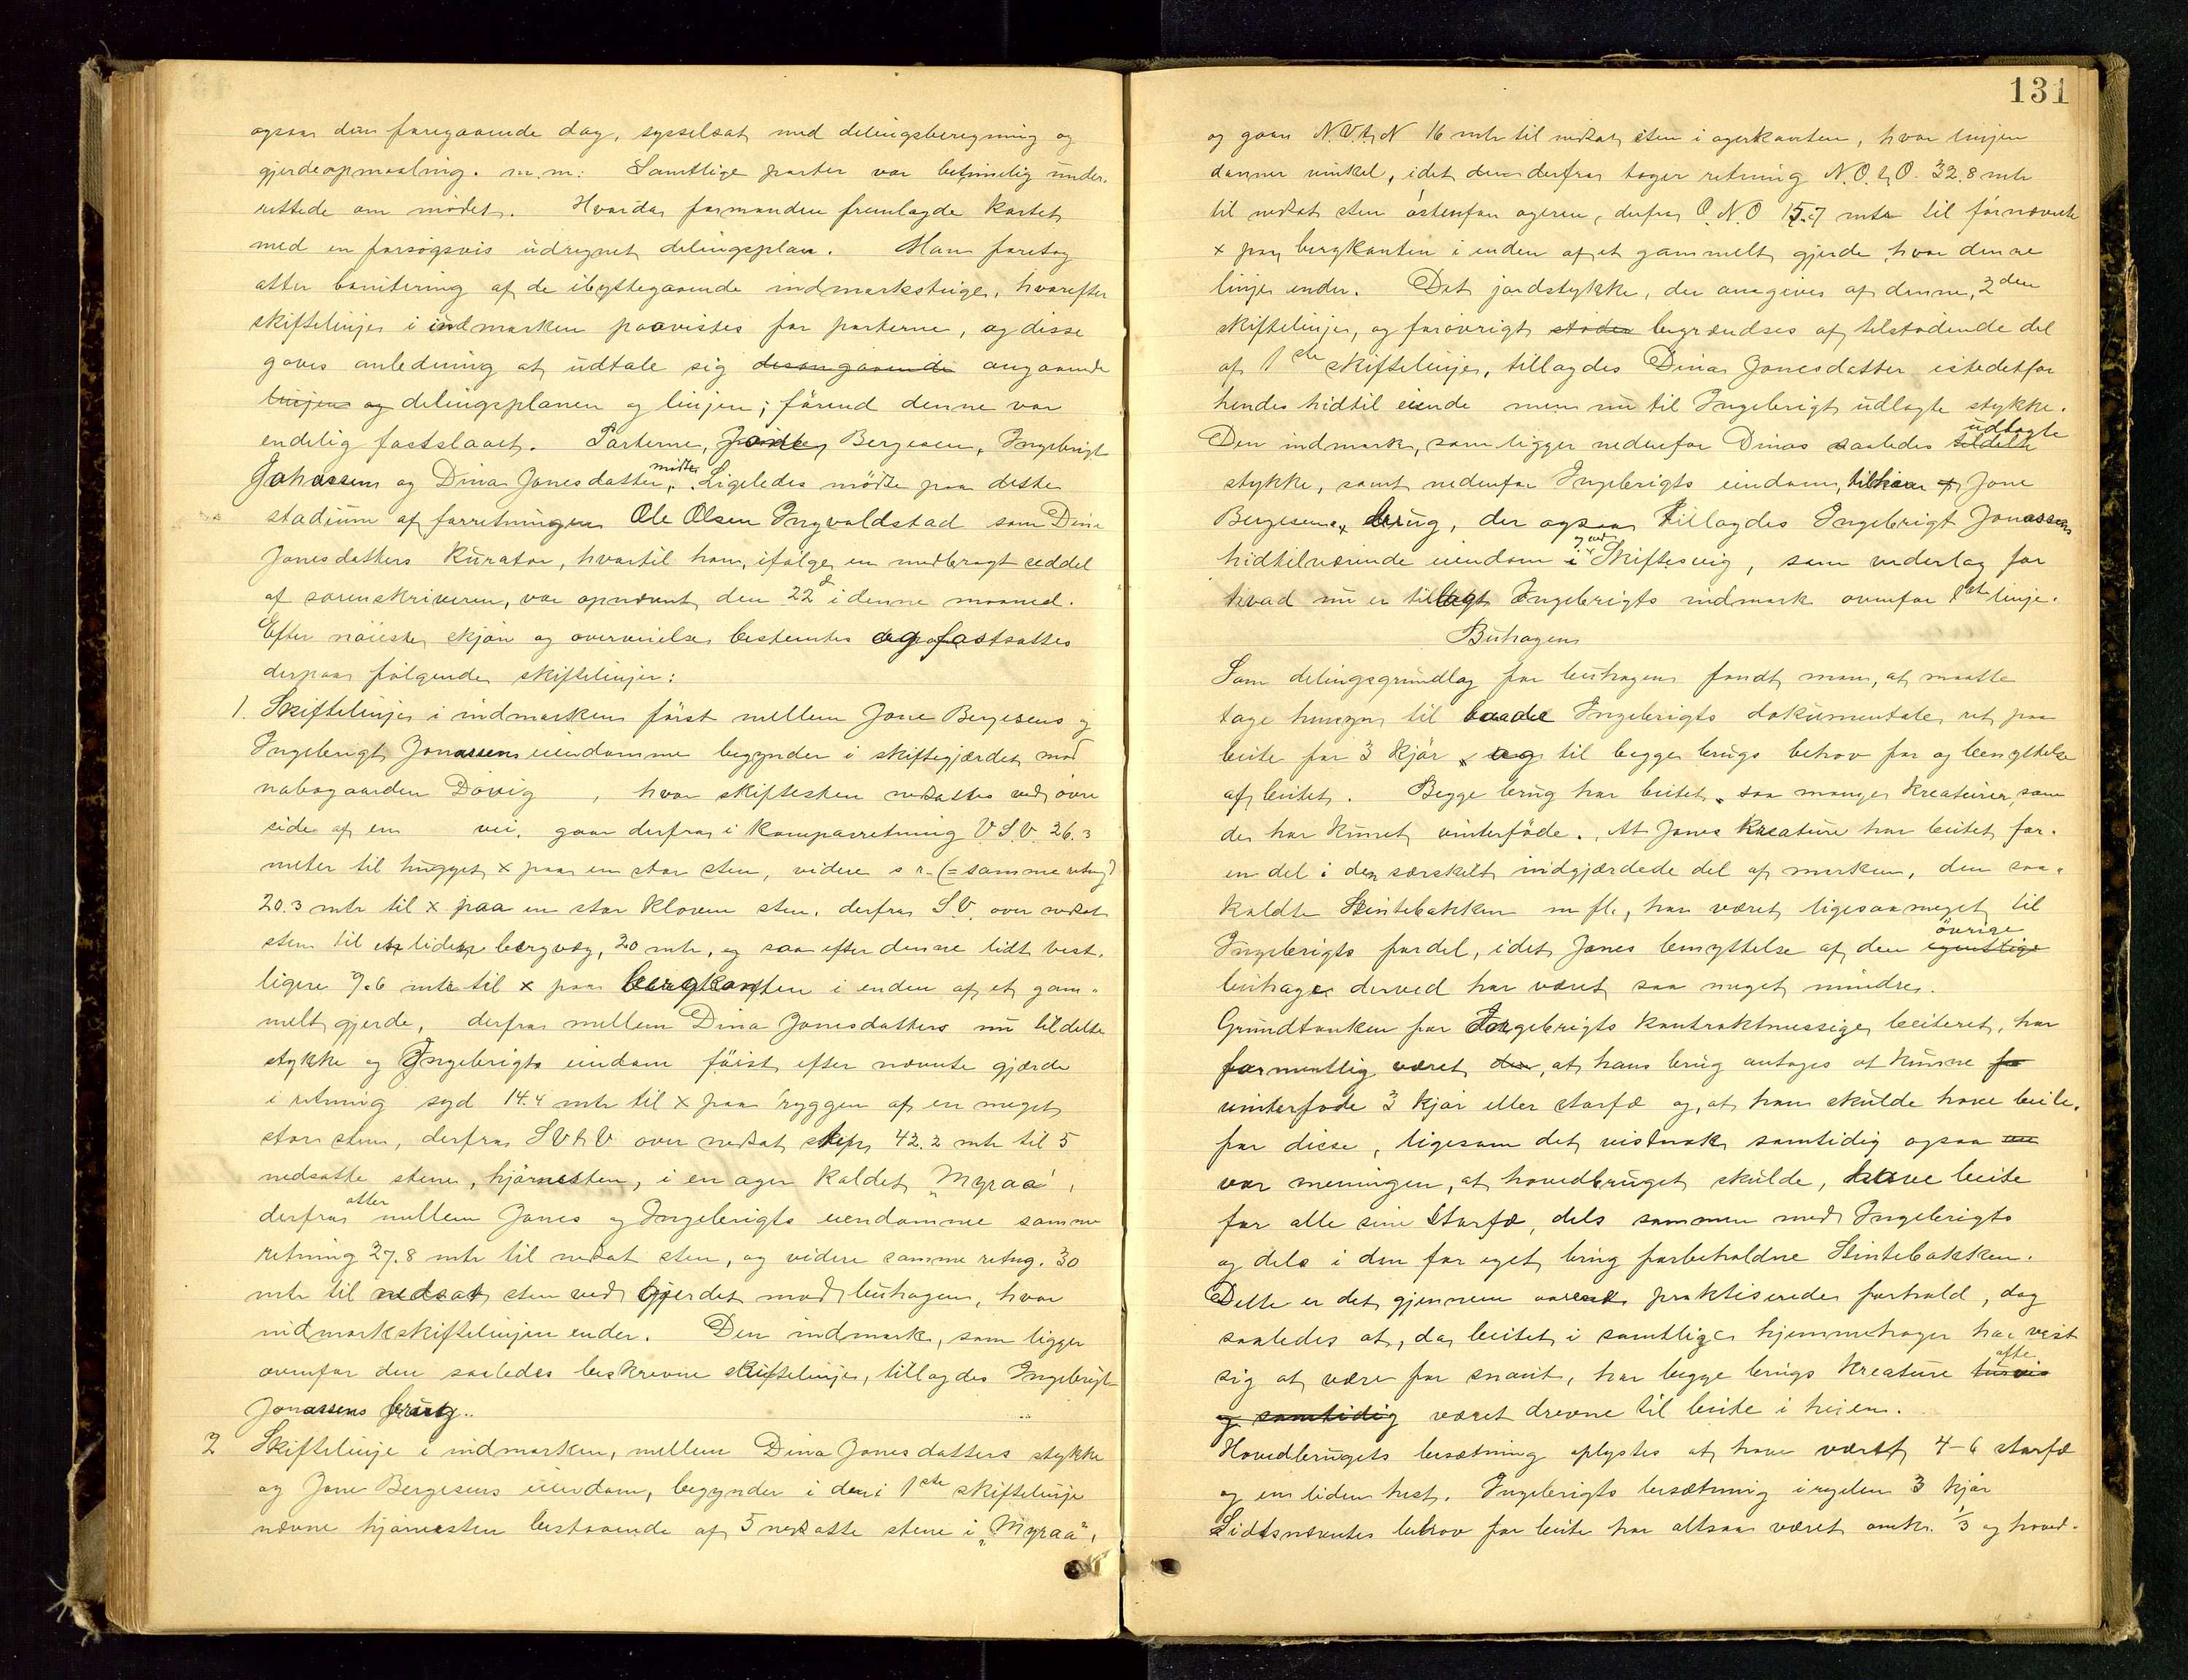 ogsaa den foregaaende dag, sysselsat med delingsberegning og
gjerdeopmaaling. m.m: Samtlige parter var betimelig under-
rettede om mødet. Hvorda formanden fremlagde kartet
med en forsøgsvis udregnet delingsplan. Man foretog
atter bonitering af de ibyttegaaende indmarksteige, hvorefter
skiftelinje i indmarken paavistes for parterne, og disse
gaves anledning at udtale sig desangaaende angaaende
linjen og delingsplanen og linjen; førend denne var
endelig fastslaaet. Parterne, Jone Bergesen, Ingebrigt
Johassen og Dina Jonesdatter, mødte. Ligeledes mødte paa dette
stadium af forretningen Ole Olsen Ingvaldstad som Dina
Jonesdatters kurator, hvortil han, ifølge en medbragt seddel
af sorenskriveren, var opnævnt den 22 d i denne maaned.
Efter nøieste skjøn og overveielse bestemtes og fastsattes
derpaa følgende skiftelinjer:
1. Skiftelinje i indmarken først mellem Jone Bergesens og
Ingebrigt Jonassens eiendomme begynder i skiftegjærdet mod
nabogaarden Døvig, hvor skiftesten nedsattes ved øvre
side af en vei, gaar derfra i kompasretning V.S.V. 26.3
meter til hugget x paa en stor sten, videre s r. (= samme retng)
20.3 mtr til x paa en stor kloven sten, derfra S.V. over nedsat
sten til et lidet bergvæg, 20 mtr, og saa efter denne lidt vest-
ligere 9.6 mtr til x paa bergkanten i enden af et gam-
melt gjerde, derfra mellem Dina Jonesdatters nu tildelte
stykke og Ingebrigts eiendom først efter nævnte gjærde
i retning syd 14.4 mtr til x paa ryggen af en meget
stor sten, derfra SVtV over nedsat sten 42.2 mtr til 5
nedsatte stene, hjørnesten, i en ager kaldet "Myraa",
derfra atter mellem Jones og Ingebrigts eiendomme samme
retning 27.8 mtr til nedsat sten, og videre samme retng. 30
mtr til nedsat sten ved gjerdet mod buhagen, hvor
indmarkskiftelinjen ender. Den indmark, som ligger
ovenfor den saaledes beskrevne skiftelinje, tillagdes Ingebrigt
Jonassens brug.
2 Skiftelinje i indmarken, mellem Dina Jonesdatters stykke
og Jone Bergesens eiendom, begynder i den i 1ste skiftelinje
nævne hjørnesten bestaaende af 5 nedsatte stene i "Myraa",
131
og gaar N.V.t.N 16 mtr til nedsat sten i agerkanten, hvor linjen
danner vinkel, idet den derfra tager retning N.O.t.O. 32.8 mtr
til nedsat sten østenfor ageren, derfra O.N.O 15.7 mtr til førnævnte
x paa bergkanten i enden af et gammelt gjerde, hvor denne
linje ender. Det jordstykke, der omgives af denne, 2den
skiftelinje, og forøvrigt støder begrændses af tilstødende del
af 1ste skiftelinje, tillagdes Dina Jonesdatter istedetfor
hendes hidtil eiende men nu til Ingebrigt udlagte stykke.
Den indmark, som ligger nedenfor Dinas saaledes tildelte udlagte
stykke, samt nedenfor Ingebrigts eiendom, tilkom Jone
Bergesens brug, der ogsaa tillagdes Ingebrigt Jonassens
hidtilværende eiendom i Skiftesvig, som vederlag for
hvad nu er tillagt Ingebrigts indmark ovenfor 1ste linje.
Buhagen
Som delingsgrundlag for buhagen fandt man, at maatte
tage hensyn til baade Ingebrigts dokumentale ret paa
beite for 3 kjør og til begge brugs behov for og benyttelse
af beitet. Begge brug har beitet saa mange kreaturer, som
de har kunnet vinterføde. At Jones kreature har beitet for-
en del i den særskilt indgjærdede del af marken, den saa-
kaldte Stintebakken m fl., har været ligesaameget til
Ingebrigts fordel, idet Jones benyttelse af den egentlige øvrige
buhage derved har været saa meget mindre.
Grundtanken for Ingebrigts kontraktmessige beiteret, har
formentlig været den, at hans brug antages at kunne fø
vinterføde 3 kjør eller storfæ og, at han skulde have beite
for disse, ligesom det vistnok samtidig ogsaa
var meningen, at hovedbruget skulde, have beite
for alle sine storfæ, dels sammen med Ingebrigts
og dels i den for eget brug forbeholdne Stintebakken.
Dette er det gjennem aarene praktiserede forhold, dog
saaledes at, da beitet i samtlige hjemmehager har vist
sig at være for snaut, har begge brugs kreature turvis ofte
og samtidig været drevne til beite i heien.
Hovedbrugets besætning oplystes at have været 4-6 storfæ
og en liden hest. Ingebrigts besætning i regelen 3 kjør
Sidstnævntes behov for beite har altsaa været omkr. 1/3 og hoved-